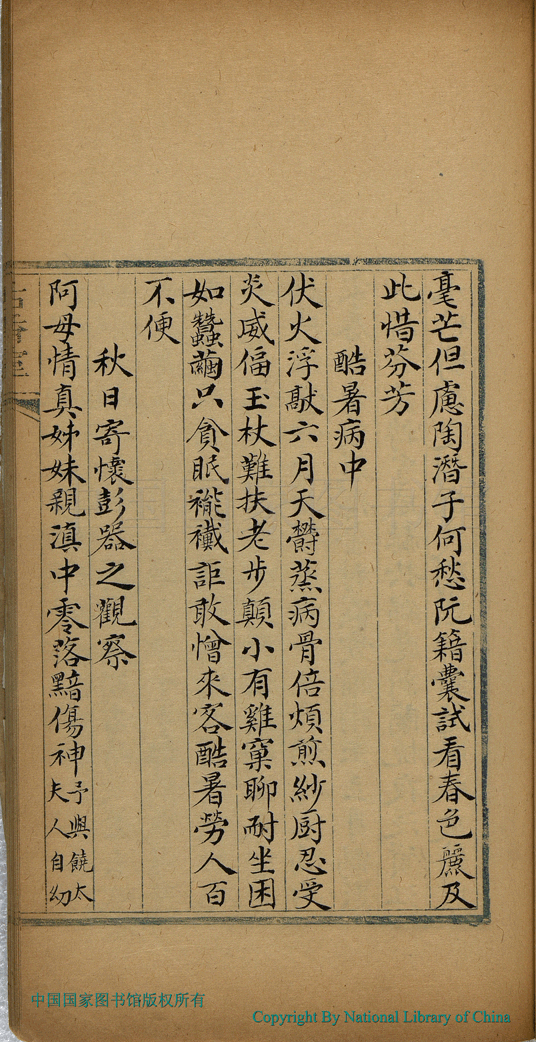 毫芒但慮陶潛子何愁阮籍囊試看春色麗及
此惜芬芳
酷暑病中
伏火浮歊六月天欝蒸病骨倍煩煎紗厨忍受
炎威偪玉杖難扶老步顛小有雞窠聊耐坐困
如蠶繭只貪眠褦襶詎敢憎來客酷暑勞人百
不便
秋日寄懷彭器之觀察
阿母情真姊妹親滇中零落黯傷神
予與饒太
夫人自幼
中国国家图书馆版权所有
Copyright By National Library of China